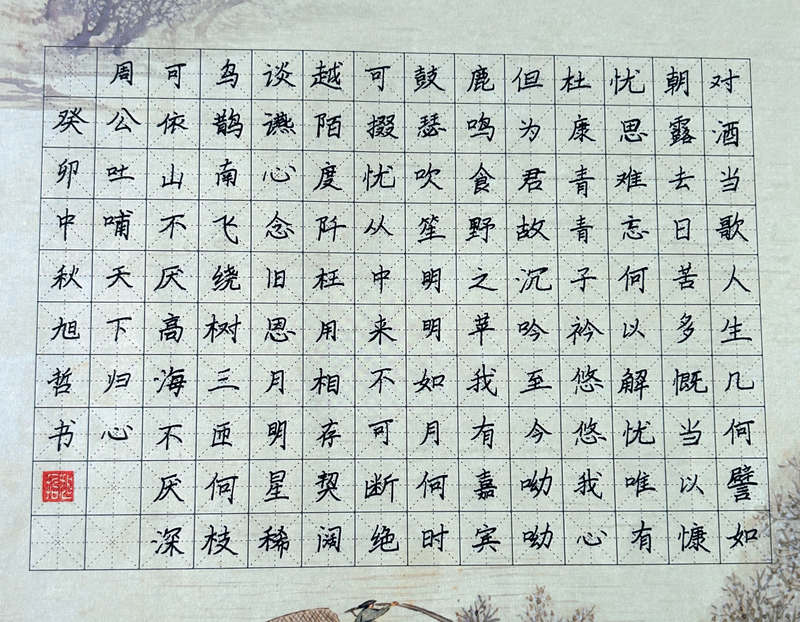 对酒当歌人生几何譬如
朝露去日苦多慨当以慷
忧思难忘何以解忧唯有
杜康青青子衿悠悠我心
但为君故沉吟至今呦呦
鹿鸣食野之苹我有嘉宾
鼓瑟吹笙明明如月何时
可掇忧从中来不可断绝
越陌度阡枉用相存契阔
谈讌心念旧恩月明星稀
乌鹊南飞绕树三匝何枝
可依山不厌高海不厌深
周公吐哺天下归心
癸卯中秋旭哲书